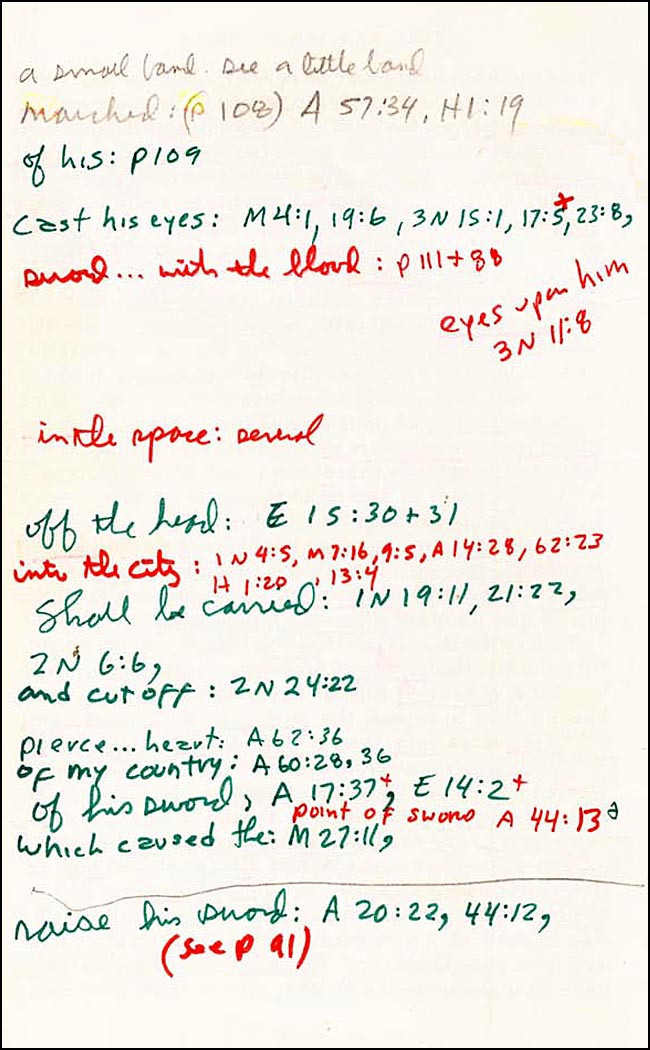 a small band. see a little band
marched: (p 108) A 57:34, H1:19
of his: p109
cast his eyes: M4:1, 19:6, 3N 15:1, 17:5+, 23:8,
sword... with the blood: p 111+88
eyes upon him
3N 11:8
in the space: several
off the head: E 15:30+31
into the city: 1N4:5, M7:16, 9:5, A14:28, 62:23
H 1:20, 13:4
Shall be carried: 1N19:11, 21:22,
2N 6:6,
and cut off: 2N24:22
pierce... heart: A62:36
of my country: A60:28, 36
of his sword, A 17:37+, E 14:2+
point of sword A 44:13
which caused the: M27:11,
raise his sword: A 20:22, 44:12,
(see p 91)